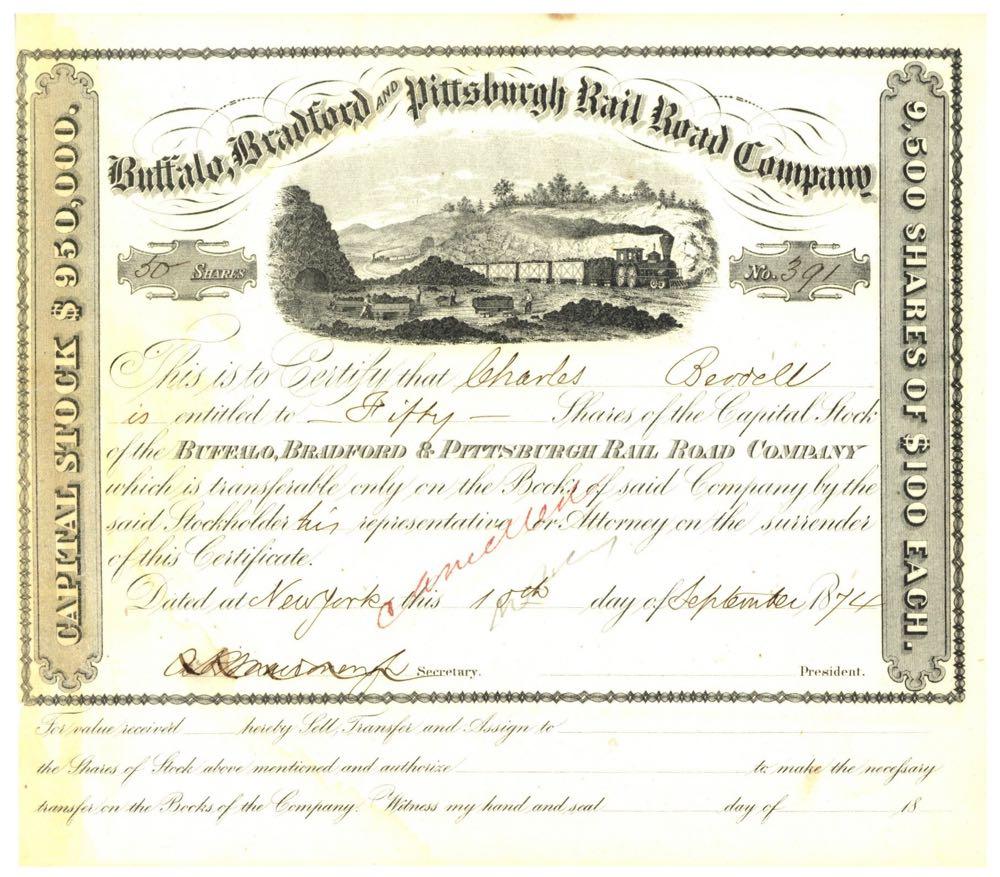 Buffalo, Bradford AND Pittsburgh Rail Road Company
CAPITAL STOCK $950,000.
9,500 SHARES OF $100 EACH.
50 SHARES
No. 391
This is to Certify that Charles Berdell
is entitled to — Fifty — Shares of the Capital Stock
of the BUFFALO, BRADFORD & PITTSBURGH RAIL ROAD COMPANY
which is transferable only on the Books of said Company by the
said Stockholder his representative or Attorney on the surrender
of this Certificate.
Cancelled
Dated at New York this 10th day of September 1874
Secretary.
President.
For value received hereby Sell, Transfer and Assign to
the Shares of Stock above mentioned and authorize to make the necessary
transfer on the Books of the Company. Witness my hand and seal day of 18